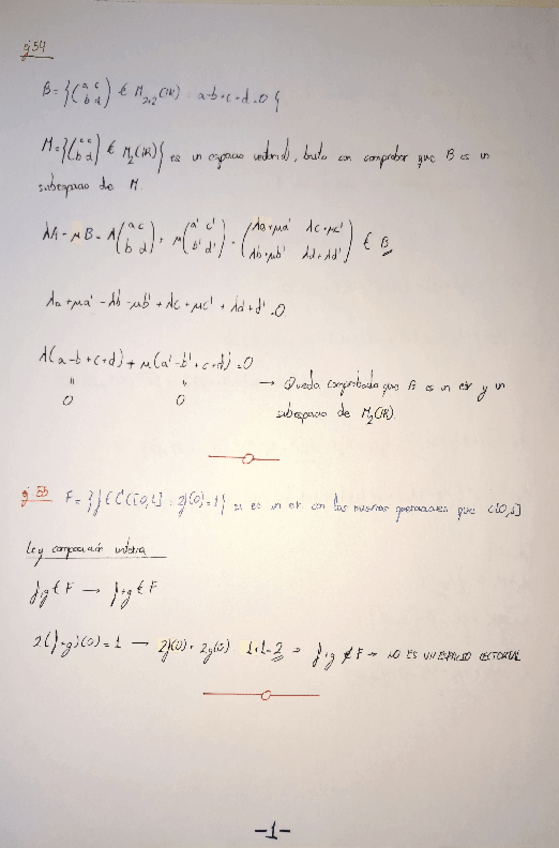 ej 54
B = {(a c
b d) € M2x2(IR) : a-b+c+d=0}
M = {(a c
b d) € M2(IR)} es un espacio vectorial, basta con comprobar que B es un
subespacio de M.
λA + μB = λ(a c
b d) + μ(a' c'
b' d') = (λa+μa' λc+μc'
λb+μb' λd+λd') € B
λa + μa' - λb - μb' + λc + μc' + λd + d' = 0
λ(a-b+c+d) + μ(a'-b'+c+d) = 0
" "
0 0
→ Queda comprobado que B es un ev y un
subespacio de M2(IR).
ej 56 F = {f € C([0,1] : 2f(0)=1} si es un ev con las mismas operaciones que C[0,1]
Ley composición interna
f,g € F → f+g € F
2(f+g)(0)=1 → 2f(0)+2g(0) 1+1=2 ⇒ f+g ∉ F → NO ES UN ESPACIO VECTORIAL
-1-